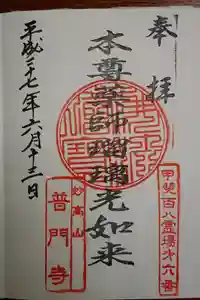 奉拝
本尊薬師瑠璃光如来
平成二十七年六月十三日
甲斐百八霊場才六番
妙高山
普門寺